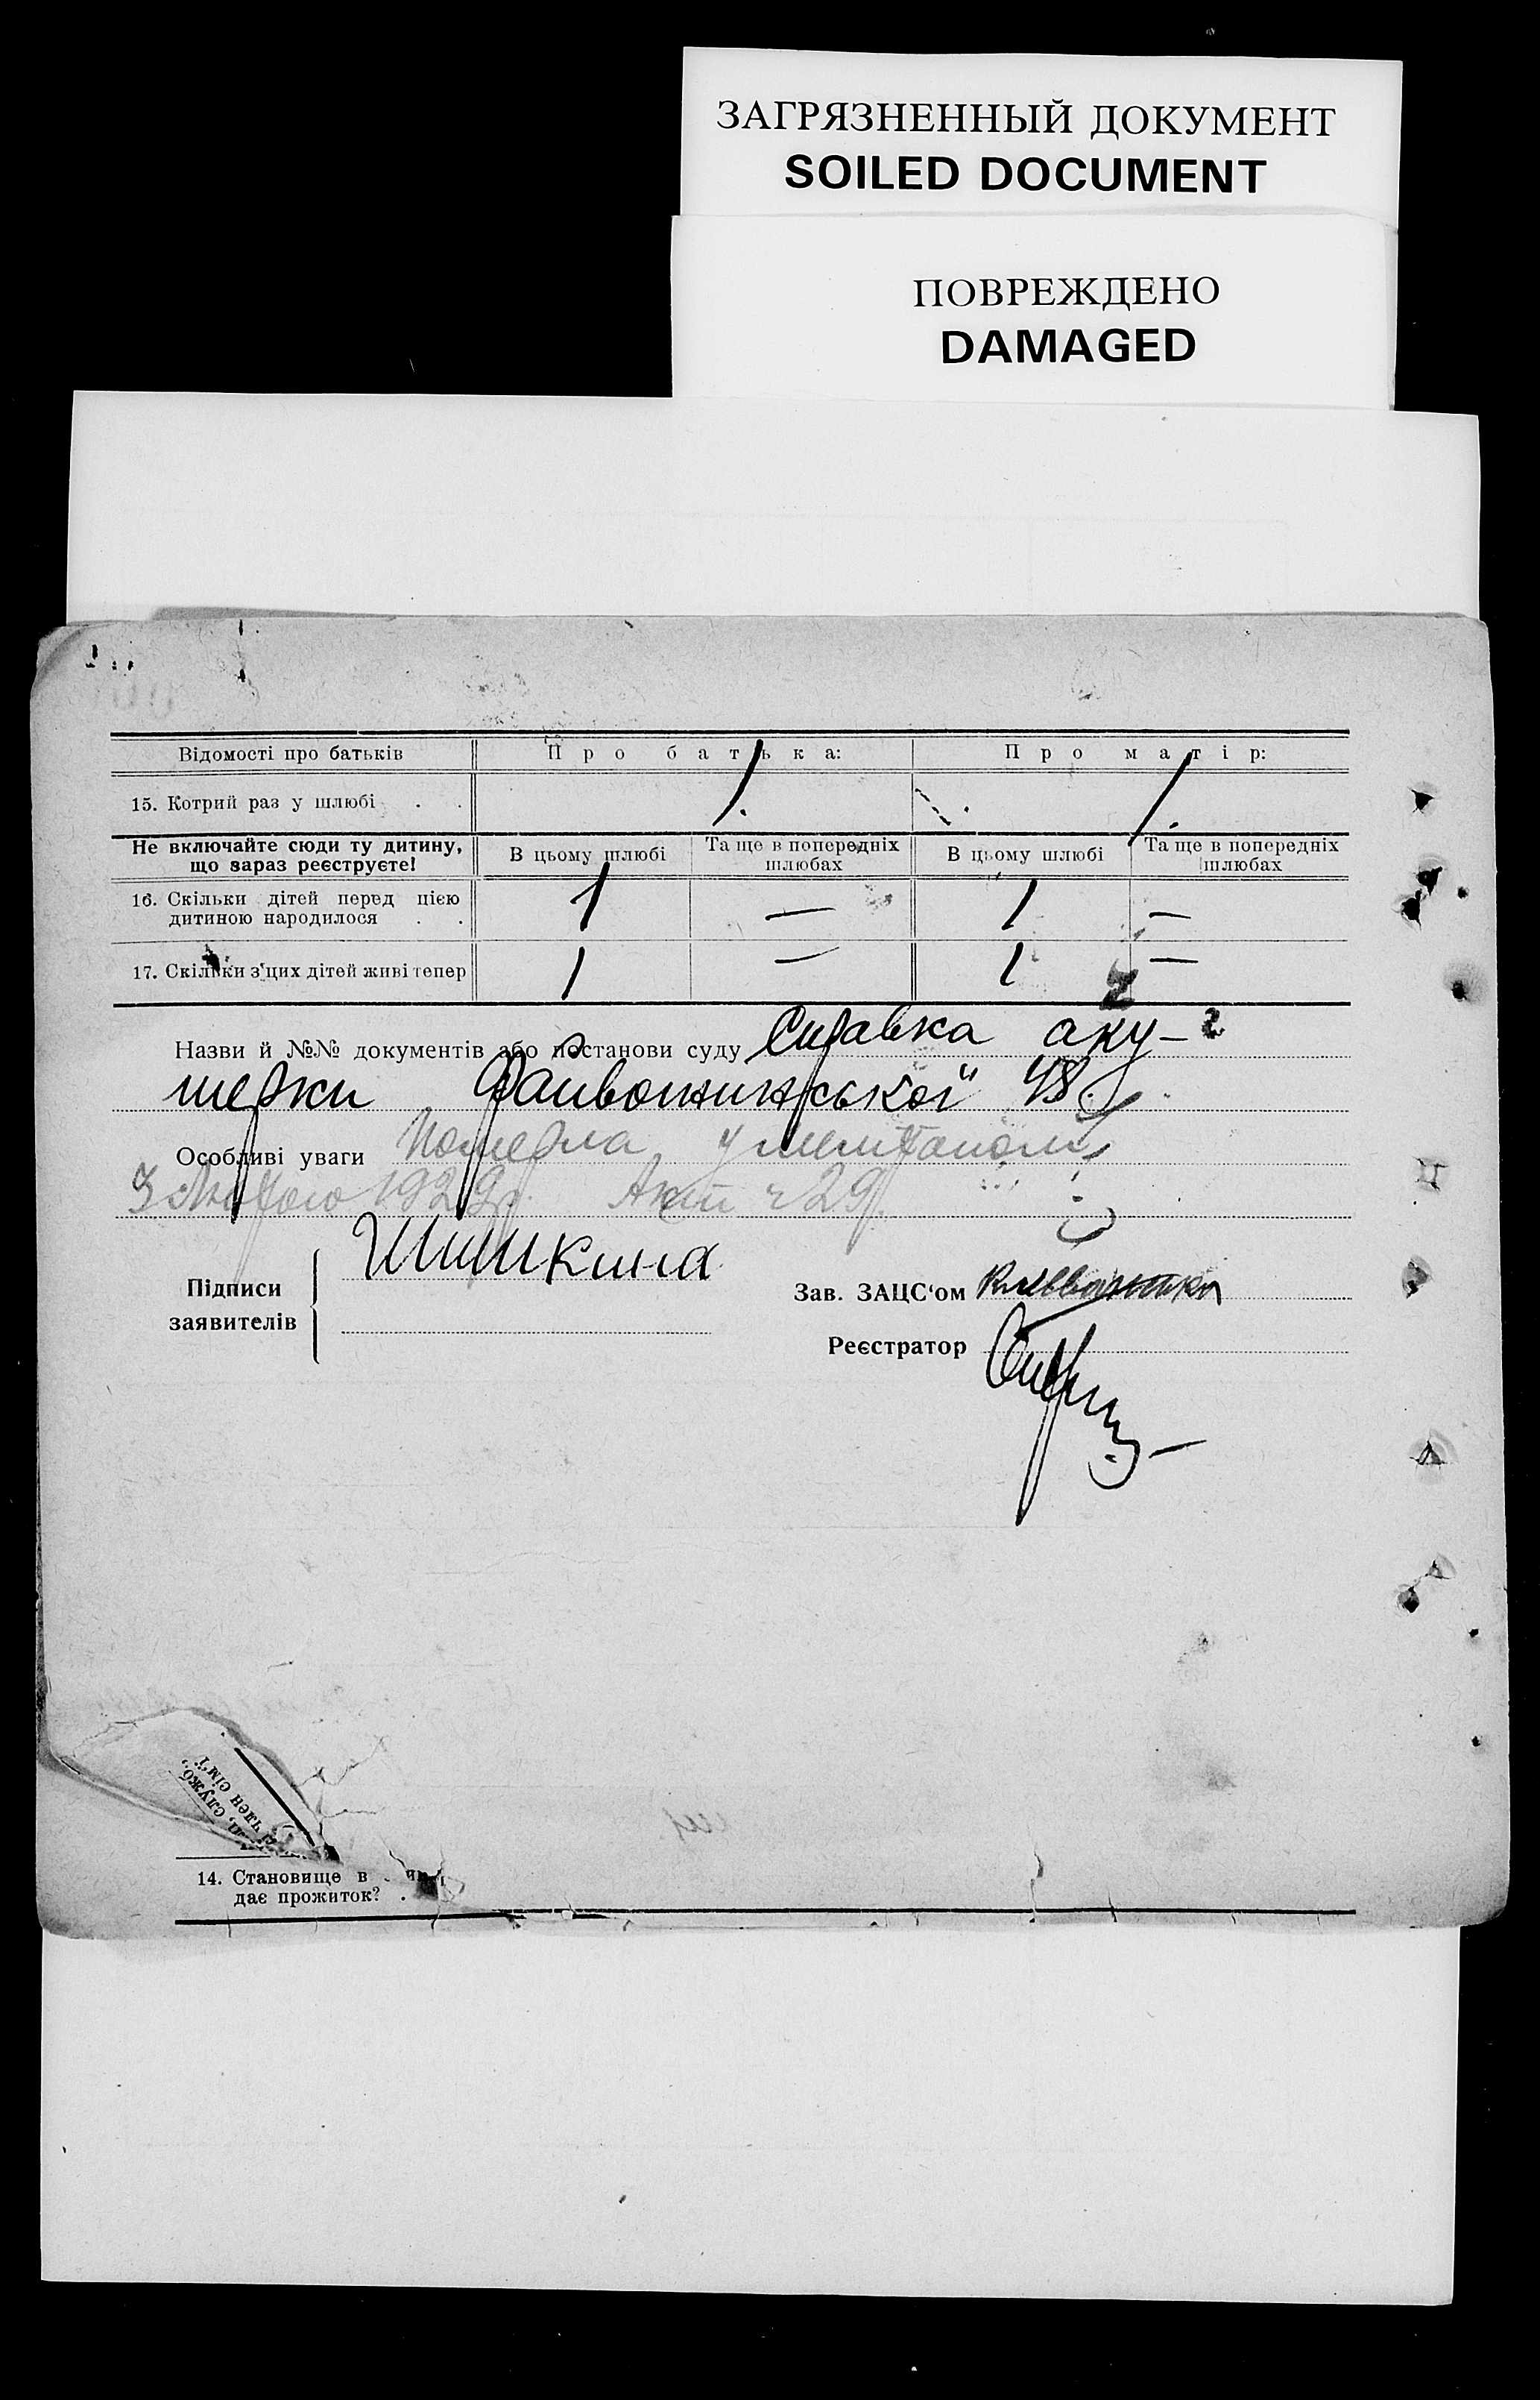 ЗАГРЯЗНЕННЫЙ ДОКУМЕНТ
SOILED DOCUMENT
ПОВРЕЖДЕНО
DAMAGED
Відомості про батьків Про батька: Про матір:
15. Котрий раз у шлюбі . . 1. 1.
Не включайте сюди ту дитину, що зараз реєструєте! В цьому шлюбі Та ще в попередніх шлюбах В цьому шлюбі Та ще в попередніх шлюбах
16. Скільки дітей перед цією дитиною народилося . . 1 — 1 —
17. Скільки з цих дітей живі тепер 1 — 1 —
Назви й №№ документів або постанови суду Справка аку-
шерки 48
Особливі уваги Померла
3 Лютого 1929р. Акт ч 29
Підписи заявителів Шишкина
Зав. ЗАЦС'ом
Реєстратор
служб.,
член сім'ї
14. Становище в
дає прожиток? .